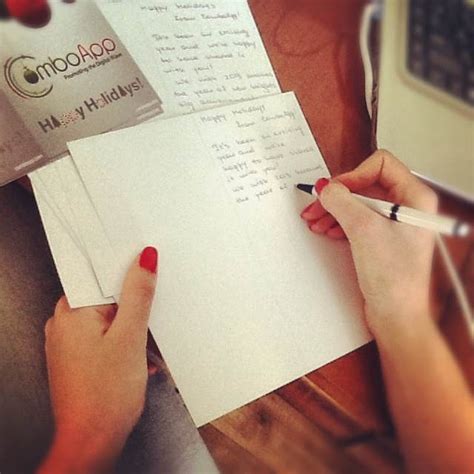 ComboApp
Promoting the Digital Wave
Happy Holidays!
Happy Holidays
from ComboApp!
It's been an exciting
year and we're happy
to have shared
it with you!
we wish 2013
the year of
Happy Holidays
from ComboApp!
It's been an exciting
year and we're
happy to have shared
it with you!
we wish 2013 becomes
the year of